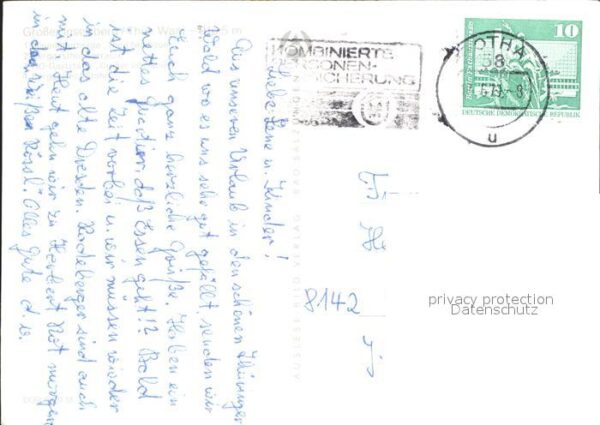 Großer Inselsberg
KOMBINIERTE
PERSONEN-
VERSICHERUNG
GOTHA
58
-8
u
10
DEUTSCHE DEMOKRATISCHE REPUBLIK
Liebe Lene u. Kinder!
Aus unseren Urlaub in den schönen Thüringer
Wald wo es uns sehr gut gefällt, senden wir
Euch ganz herzliche Grüße. Haben ein
nettes Quartier, das Essen geht!? Bald
ist die Zeit vorbei u. wir müssen wieder
in das alte Dresden. Radeberger sind auch
mit. Heut gehn wir zu Herbert Rot morgen
in das "Weißen Rössl". Alles Gute
8142
privacy protection
Datenschutz